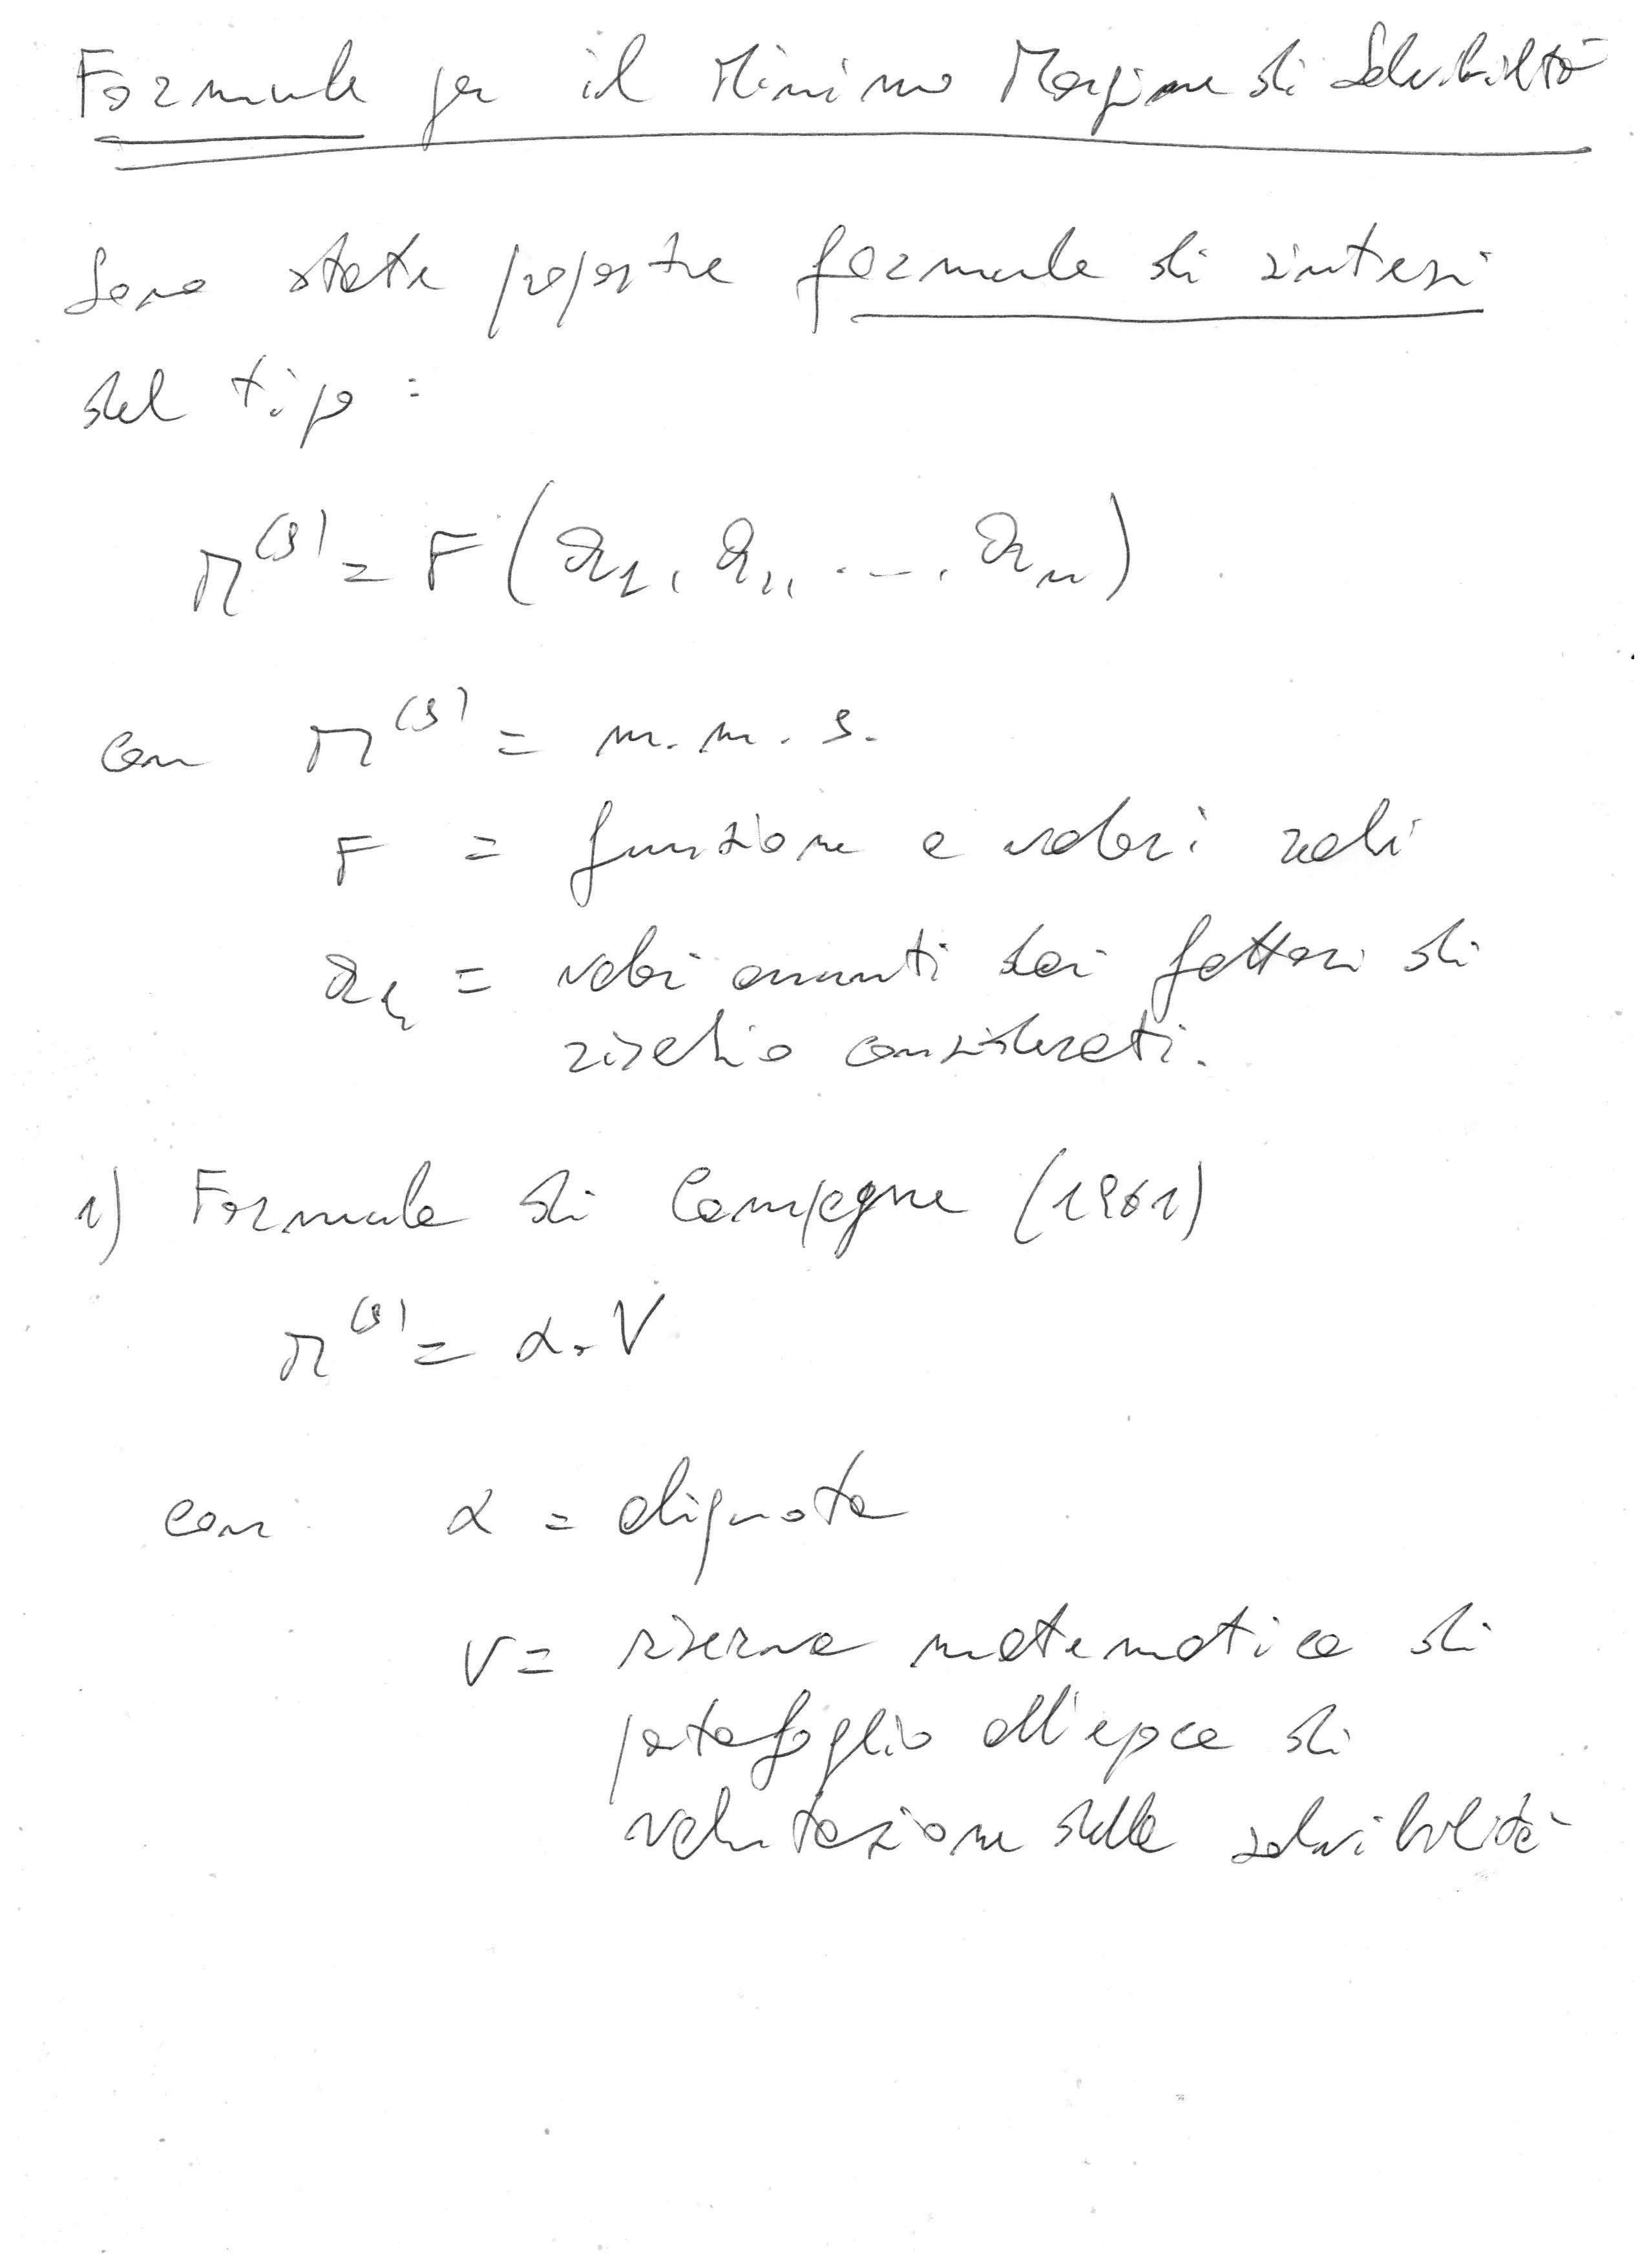 Formule per il Minimo Margine di Solvibilità
Sono state proposte formule di sintesi
del tipo:
M^(s) = F(a_1, a_2, ..., a_n)
con M^(s) = m.m.s.
F = funzione a valori reali
a_h = valori assunti dai fattori di
rischio considerati.
1) Formula di Campagne (1961)
M^(s) = α · V
con α = aliquota
V = riserva matematica di
portafoglio all'epoca di
valutazione della solvibilità